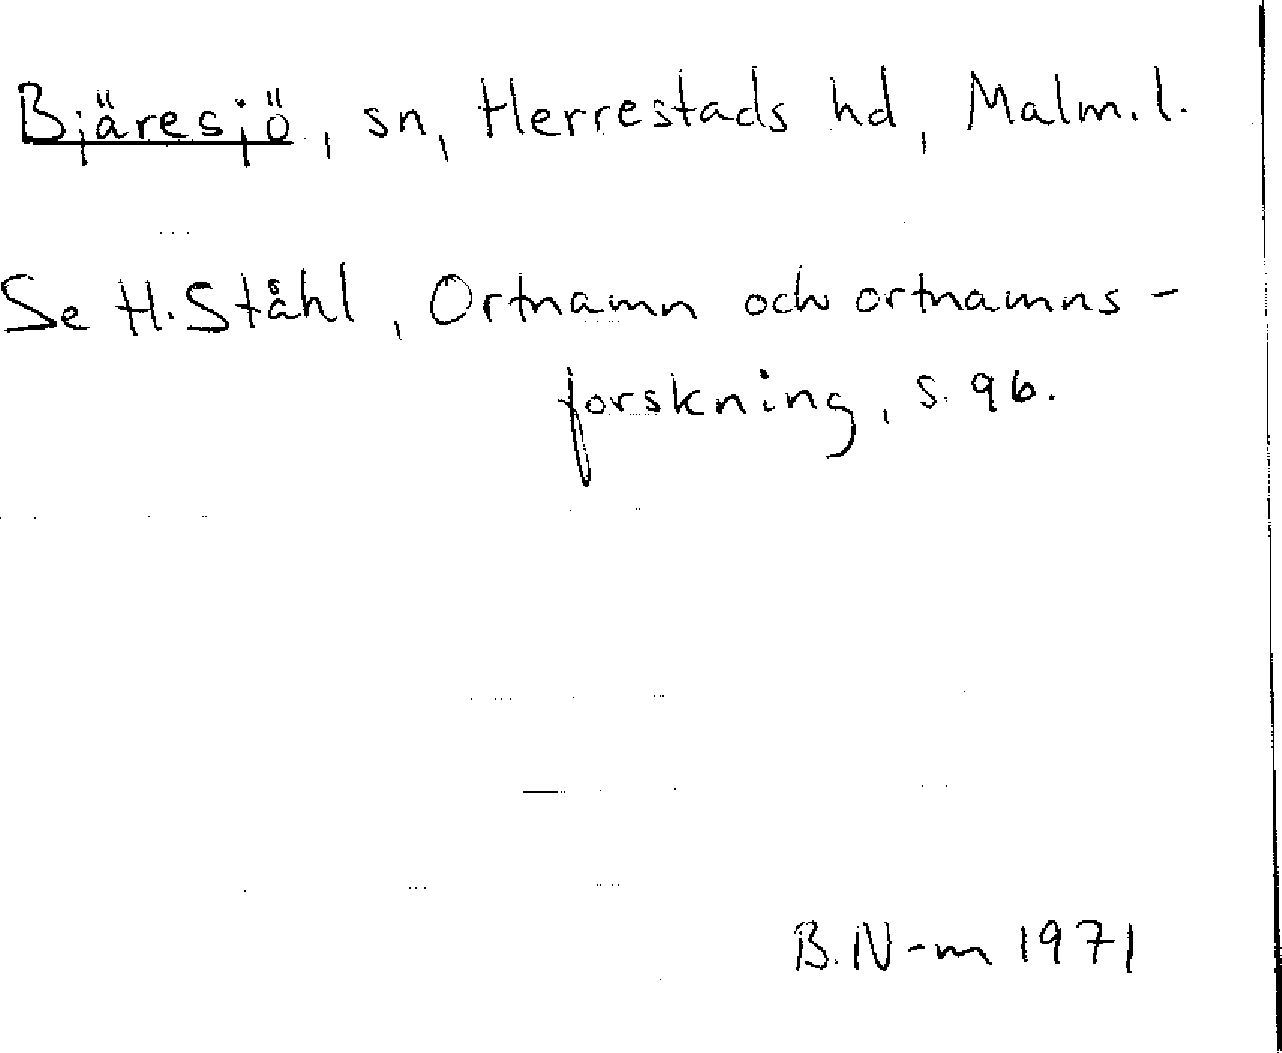 Bjäresjö, sn, Herrestads hd, Malm.l.
Se H. Ståhl, Ortnamn och ortnamns-
forskning, s. 96.
B. N-m 1971